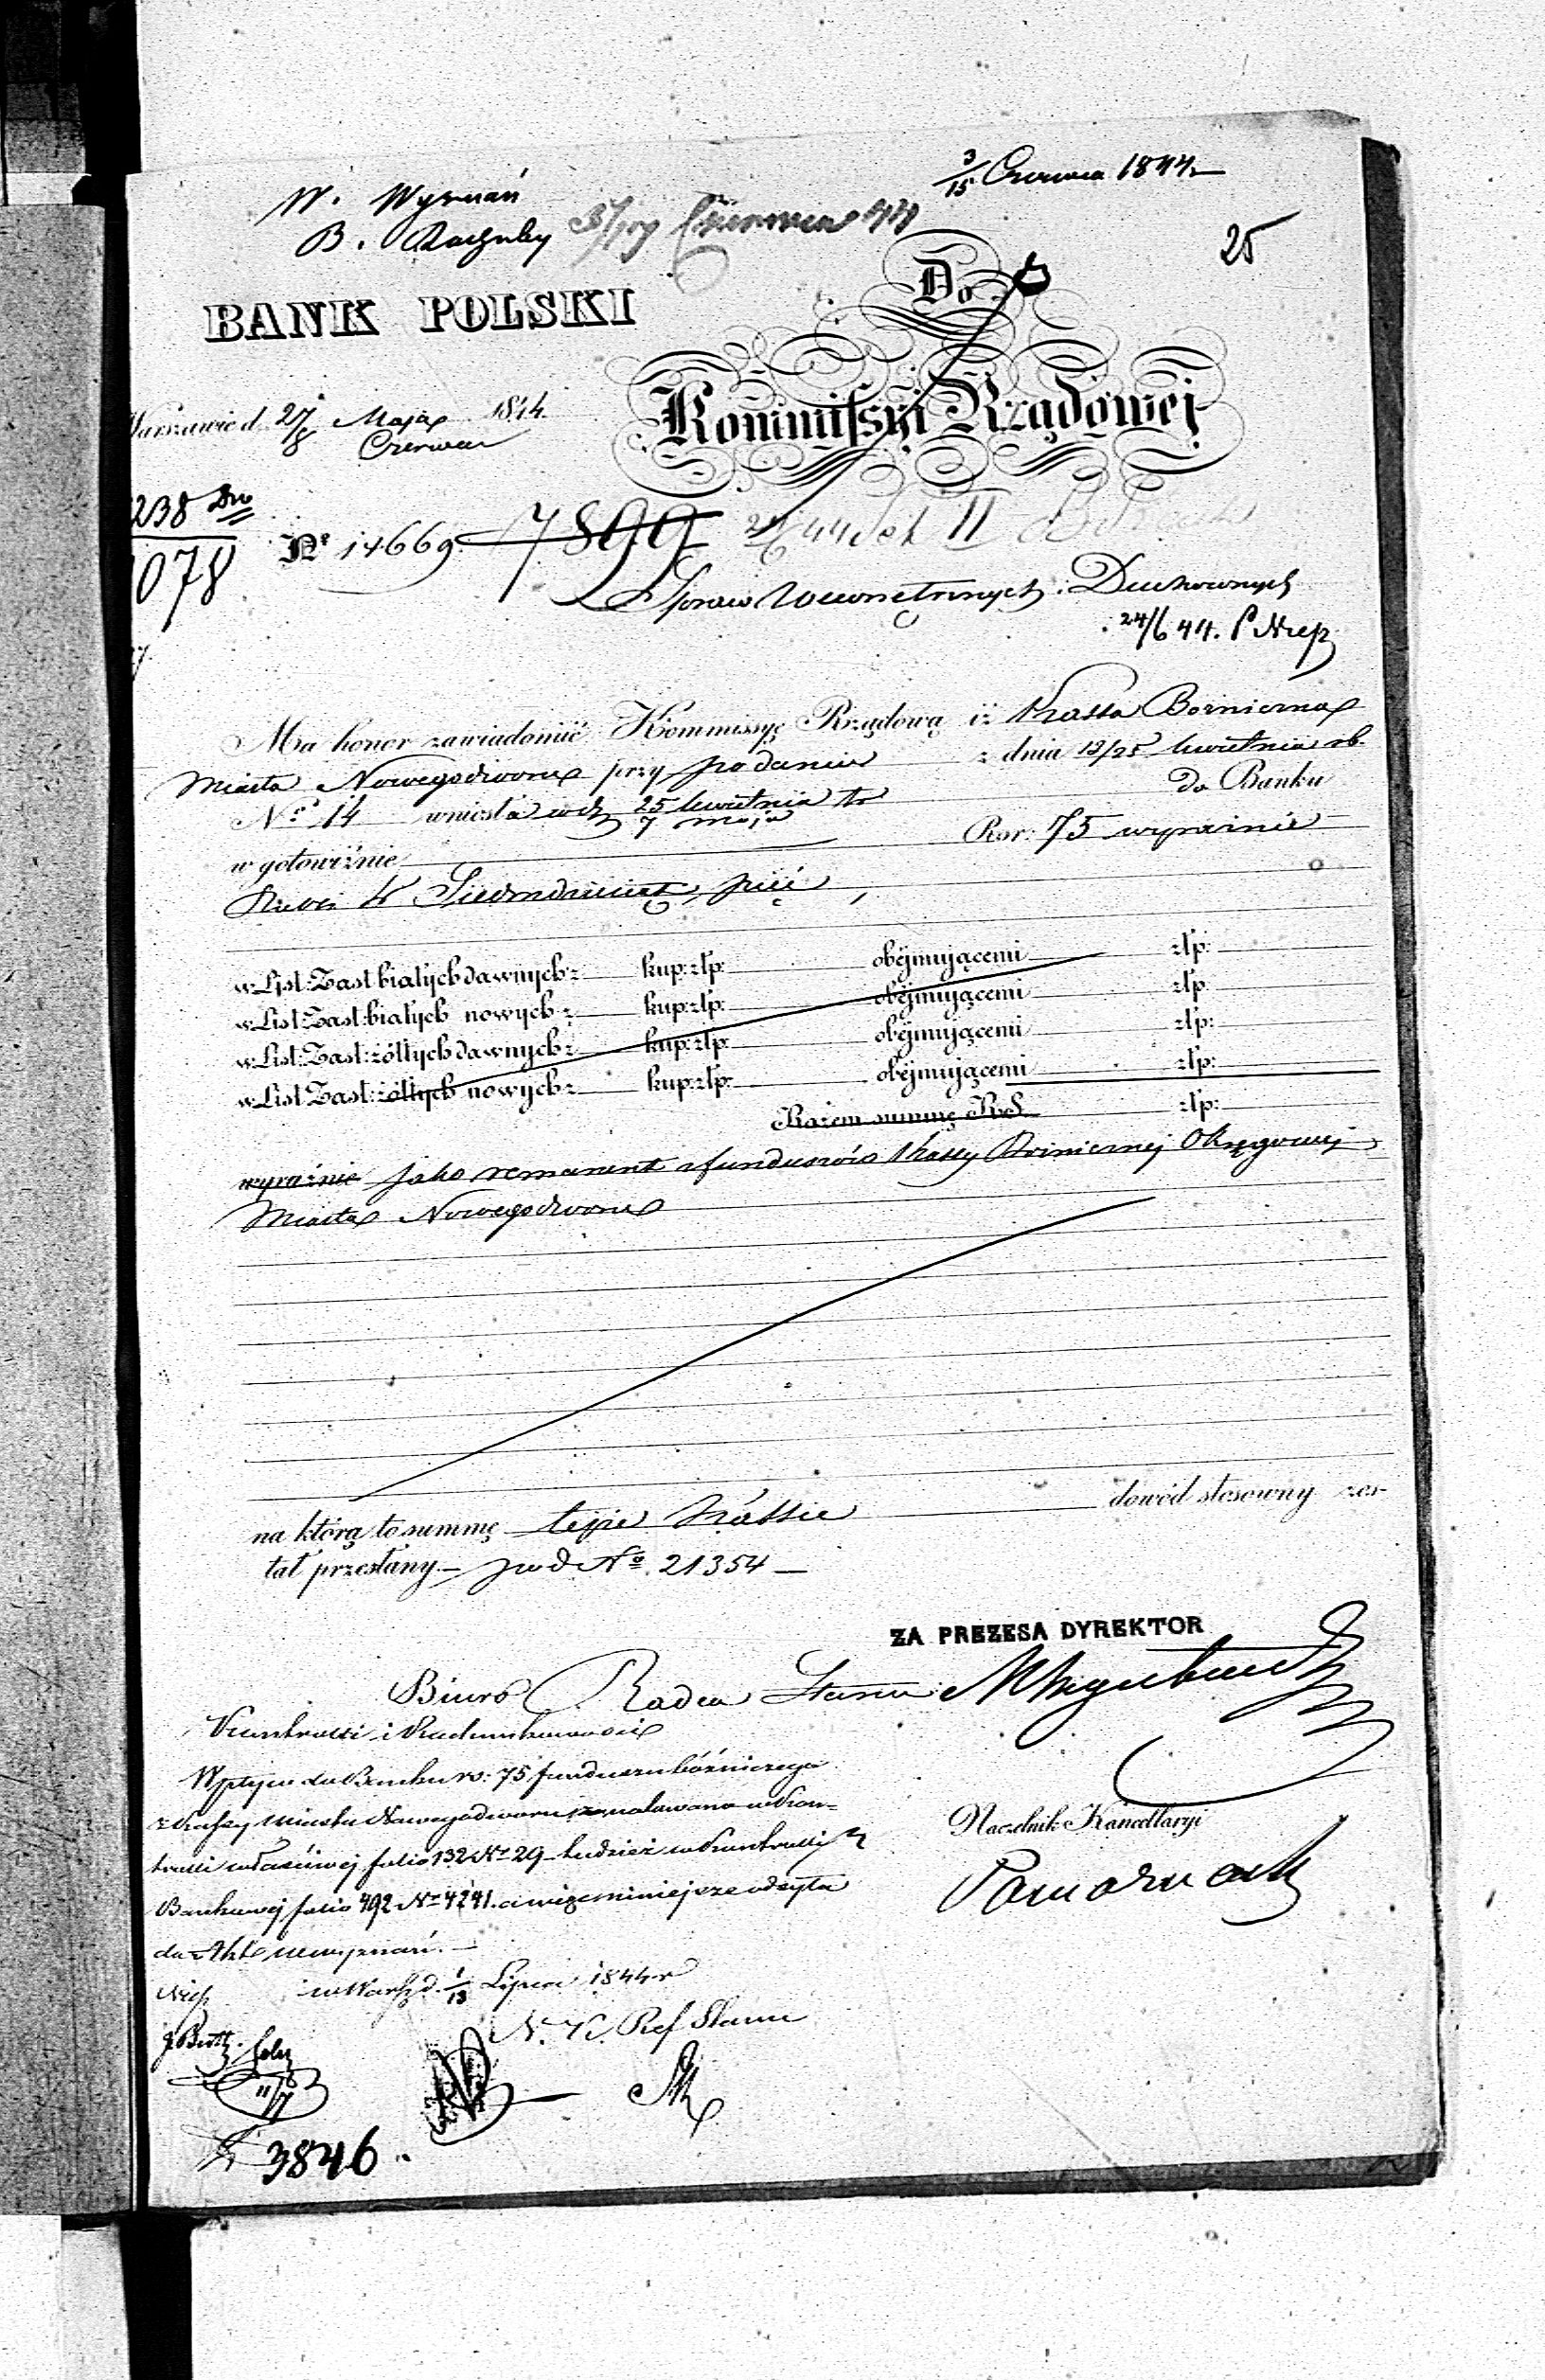 3/15 Czerwca 1844
W. Wyznań
B. Rachuby
Czerwca 44
25
BANK POLSKI
Do
Kommissyi Rządowej
Warszawie d. 27/8 Maja 1844.
Czerwca
238
1078
Nr 14669
7899
Spraw Wewnętrznych i Duchownych
24/6 44.
Ma honor zawiadomić Kommissyę Rządową iż Kassa Bożniczna
Miasta Nowegodworu przy podaniu z dnia 13/25 kwietnia rb.
No 14 wniosła w d. 25 kwietnia/7 maja tr do Banku
w gotowiźnie Rsr: 75 wyraźnie
Rubli sr Siedmdziesiąt pięć
w List: Zast: białych dawnych: kup: złp: obejmującemi złp:
w List: Zast: białych nowych: kup: złp: obejmującemi złp:
w List: Zast: żółtych dawnych: kup: złp: obejmującemi złp:
w List: Zast: żółtych nowych: kup: złp: obejmującemi złp:
Razem summę RS. złp:
wyraźnie jako remanent z funduszów Kassy Bożnicznej Okręgowej
Miasta Nowegodworu
na którą to summę tejże Kassie dowód stosowny zos-
tał przesłany – pod No. 21354 –
ZA PREZESA DYREKTOR
Radca Stanu
Biuro
Kontrolli i Rachunkowości
Wpływ do Banku rs: 75 funduszu bóżniczego
z Kassy miasta Nowegodworu zanotowano w Kon-
trolli właściwej folio 132 Nr 29 tudzież w Kontrolli
Bankowej folio 492 Nr 4241. a więc niniejsze odsyła
do Akt wyznań. –
w Warsz. d. 1/13 Lipca 1844 r
N. K. Ref Stanu
Naczelnik Kancellaryi
3846.